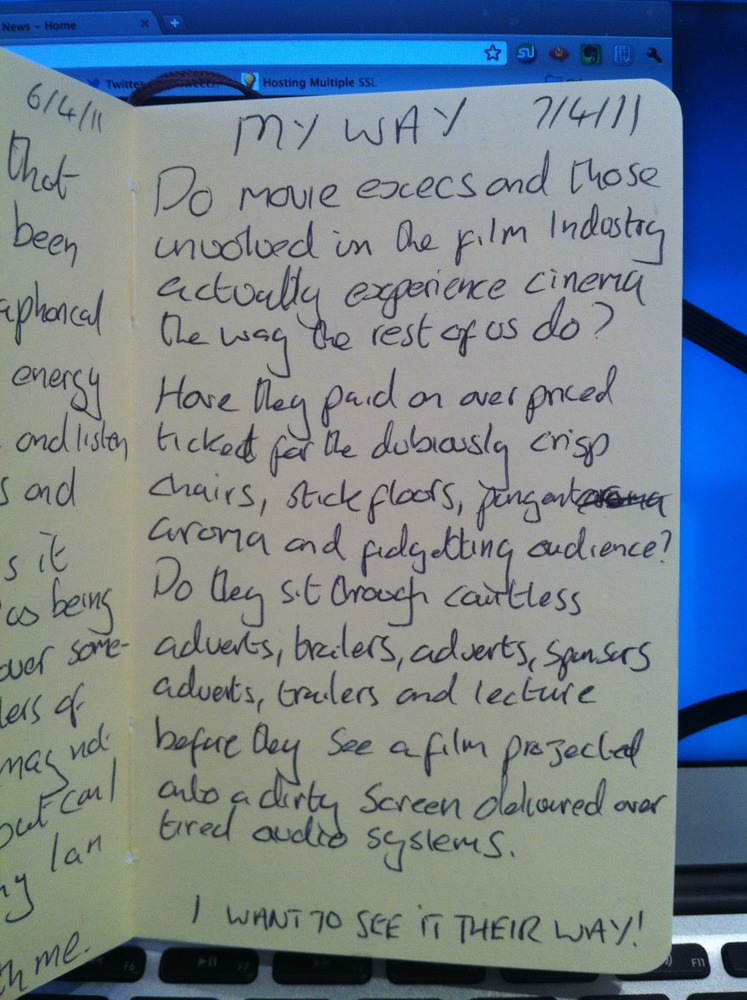 News – Home
Twitter
Hosting Multiple SSL
6/4/11
that
been
aphorical
energy
and listen
s and
s it
as being
over some-
lers of
may not
out can I
ny I an
th me.
MY WAY 7/4/11
Do movie execs and those
involved in the film Industry
actually experience cinema
the way the rest of us do?
Have they paid an over priced
ticket for the dubiously crisp
chairs, stick floors, pungent aroma
aroma and fidgetting audience?
Do they sit through countless
adverts, trailers, adverts, sponsors
adverts, trailers and lecture
before they see a film projected
onto a dirty screen delivered over
tired audio systems.
I WANT TO SEE IT THEIR WAY!
F6
F7
F11